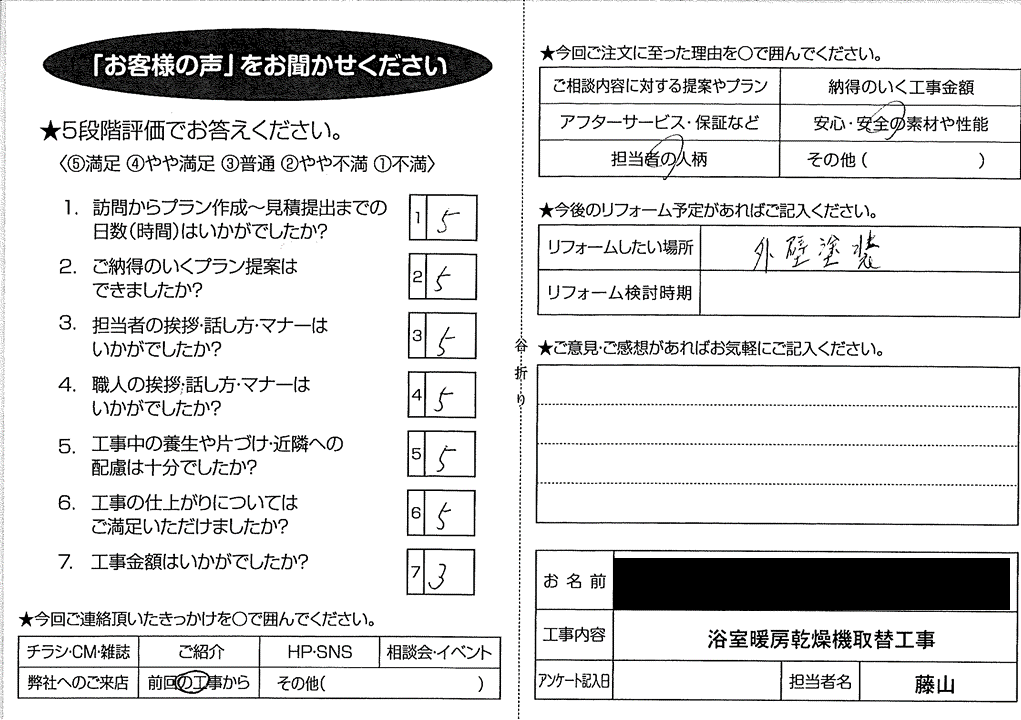 「お客様の声」をお聞かせください
★5段階評価でお答えください。
〈⑤満足 ④やや満足 ③普通 ②やや不満 ①不満〉
1. 訪問からプラン作成～見積提出までの
日数(時間)はいかがでしたか?
1 5
2. ご納得のいくプラン提案は
できましたか?
2 5
3. 担当者の挨拶・話し方・マナーは
いかがでしたか?
3 5
4. 職人の挨拶・話し方・マナーは
いかがでしたか?
4 5
5. 工事中の養生や片づけ・近隣への
配慮は十分でしたか?
5 5
6. 工事の仕上がりについては
ご満足いただけましたか?
6 5
7. 工事金額はいかがでしたか?
7 3
★今回ご連絡頂いたきっかけを○で囲んでください。
チラシ・CM・雑誌 ご紹介 HP・SNS 相談会・イベント
弊社へのご来店 前回の工事から その他( )
谷折り
★今回ご注文に至った理由を○で囲んでください。
ご相談内容に対する提案やプラン 納得のいく工事金額
アフターサービス・保証など 安心・安全の素材や性能
担当者の人柄 その他( )
★今後のリフォーム予定があればご記入ください。
リフォームしたい場所 外壁塗装
リフォーム検討時期
★ご意見・ご感想があればお気軽にご記入ください。
お名前
工事内容 浴室暖房乾燥機取替工事
アンケート記入日 担当者名 藤山